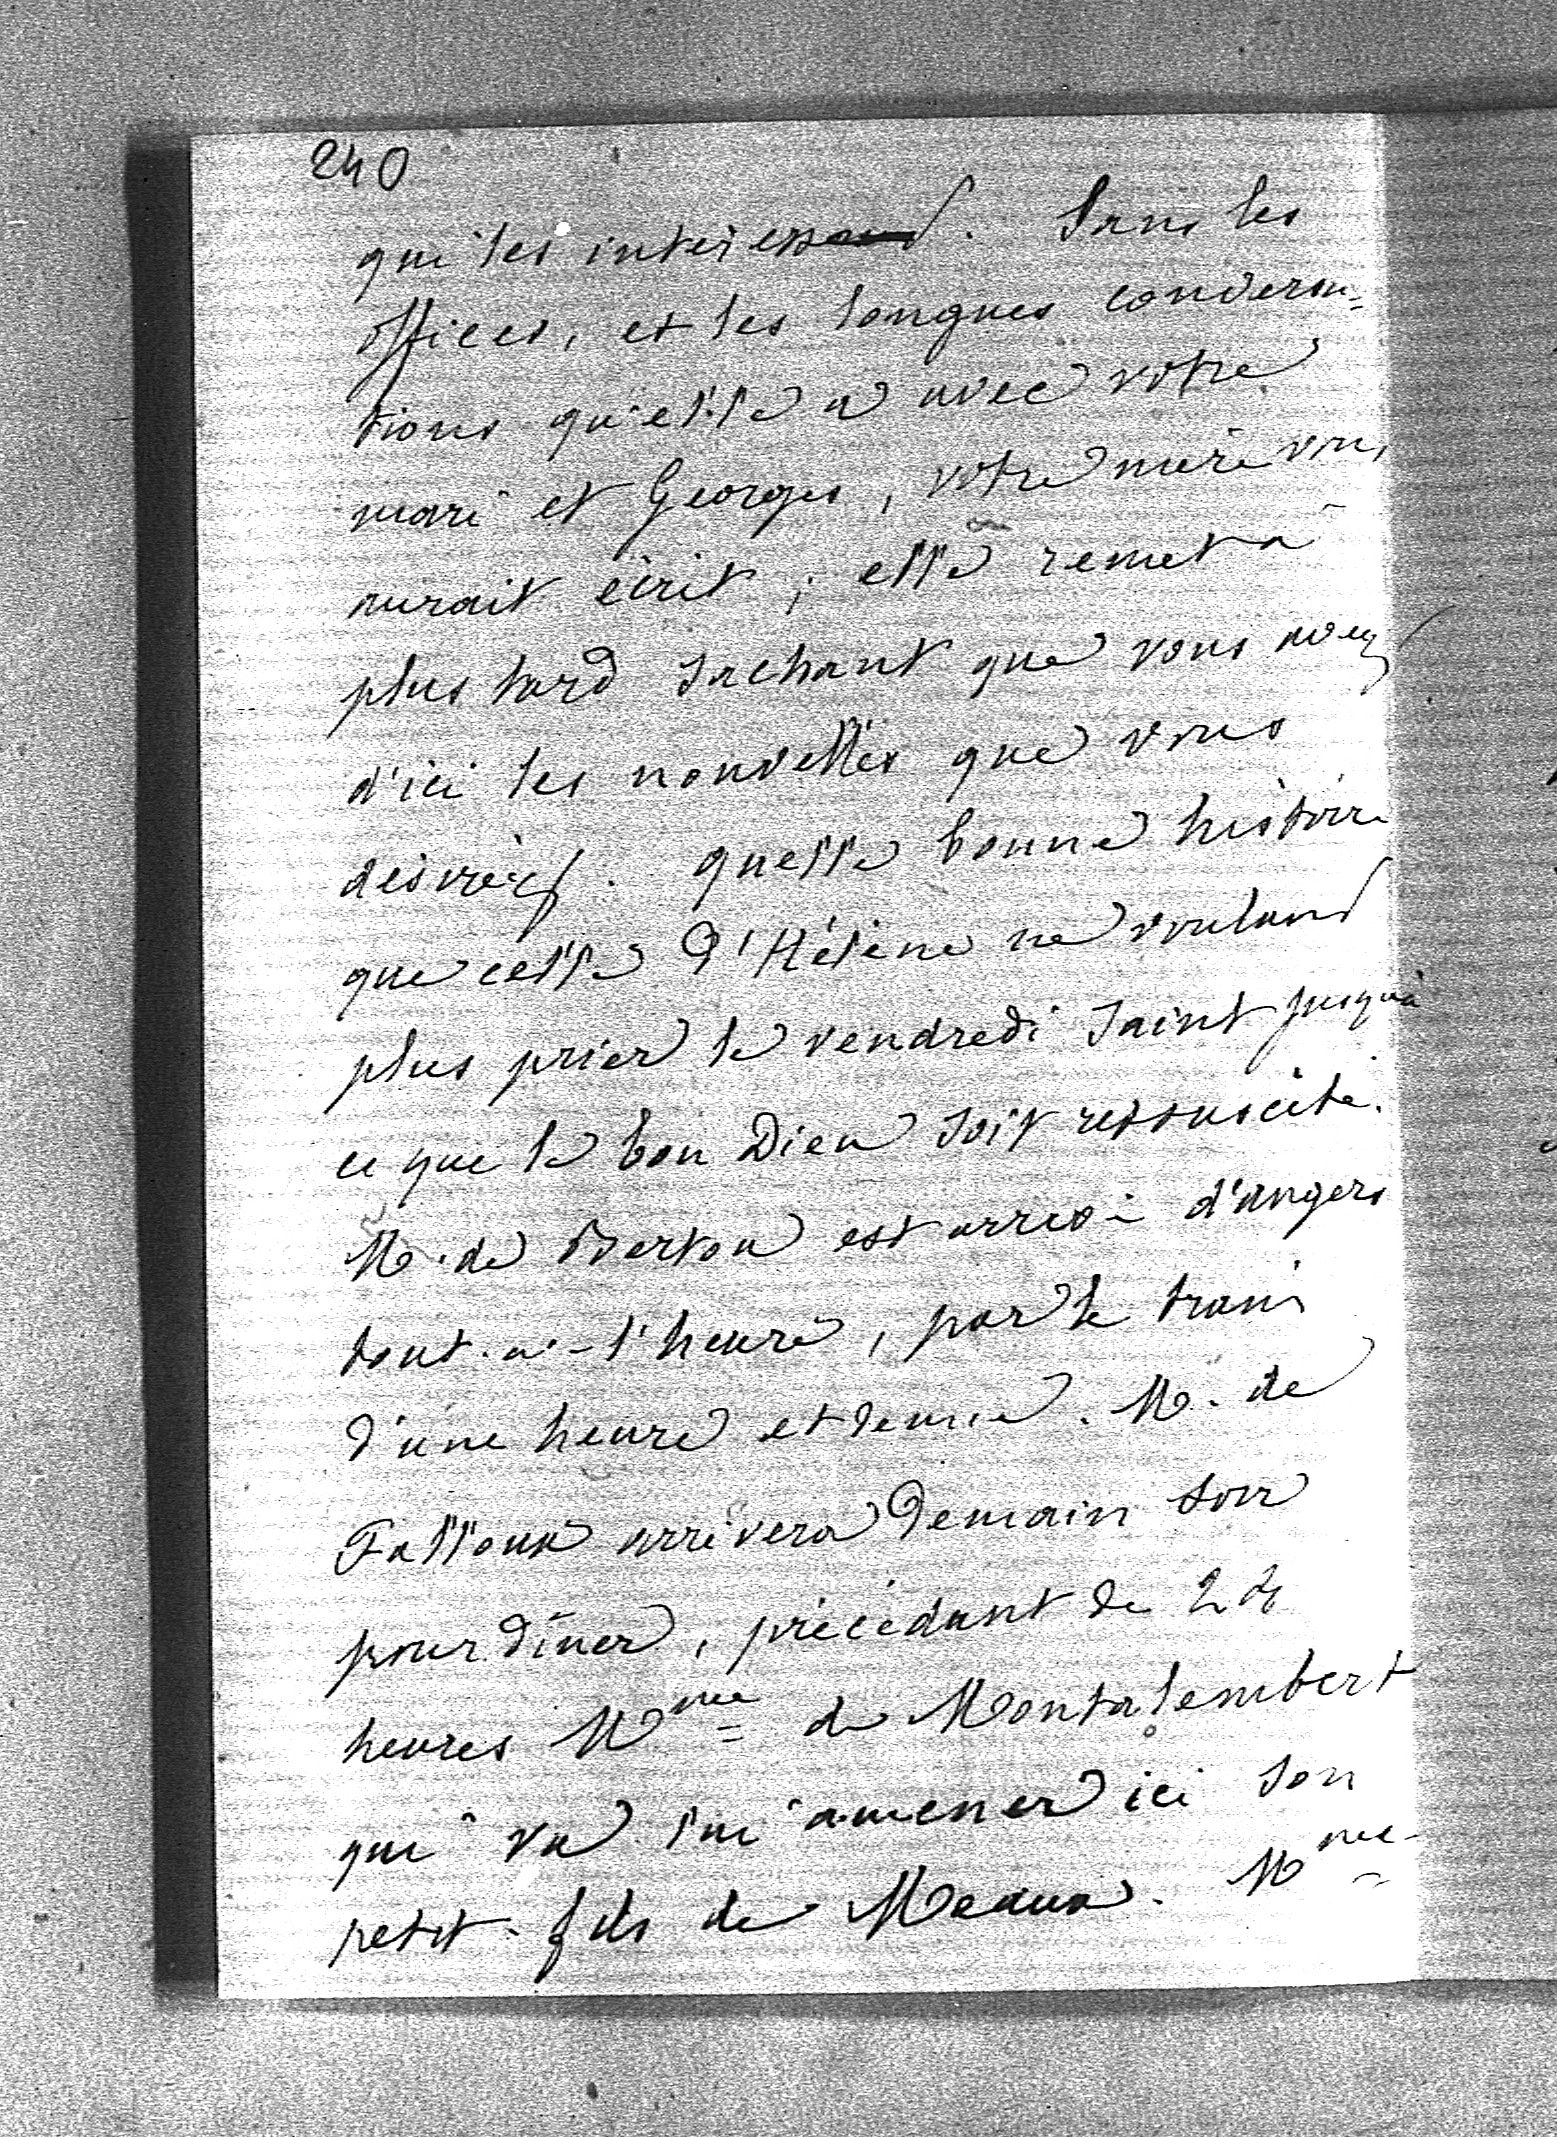 240
qui les intéressent. Sans les
offices, et les longues conversa=
tions qu'elle a avec votre
mari et Georges, votre mère vous
aurait écrit; elle remet à
plus tard sachant que vous avez
d'ici les nouvelles que vous
désirez. quelle bonne histoire
que celle d'Hélène ne voulant
plus prier le vendredi saint jusqu'à
ce que le bon Dieu soit ressuscité.
M. de Bertou est arrivé d'angers
tout-à-l'heure, par le train
d'une heure et demie. M. de
Falloux arrivera demain soir
pour dîner, précédant de 24
heures Mme de Montalembert
qui va lui amener ici son
petit-fils de Meaux. Mme